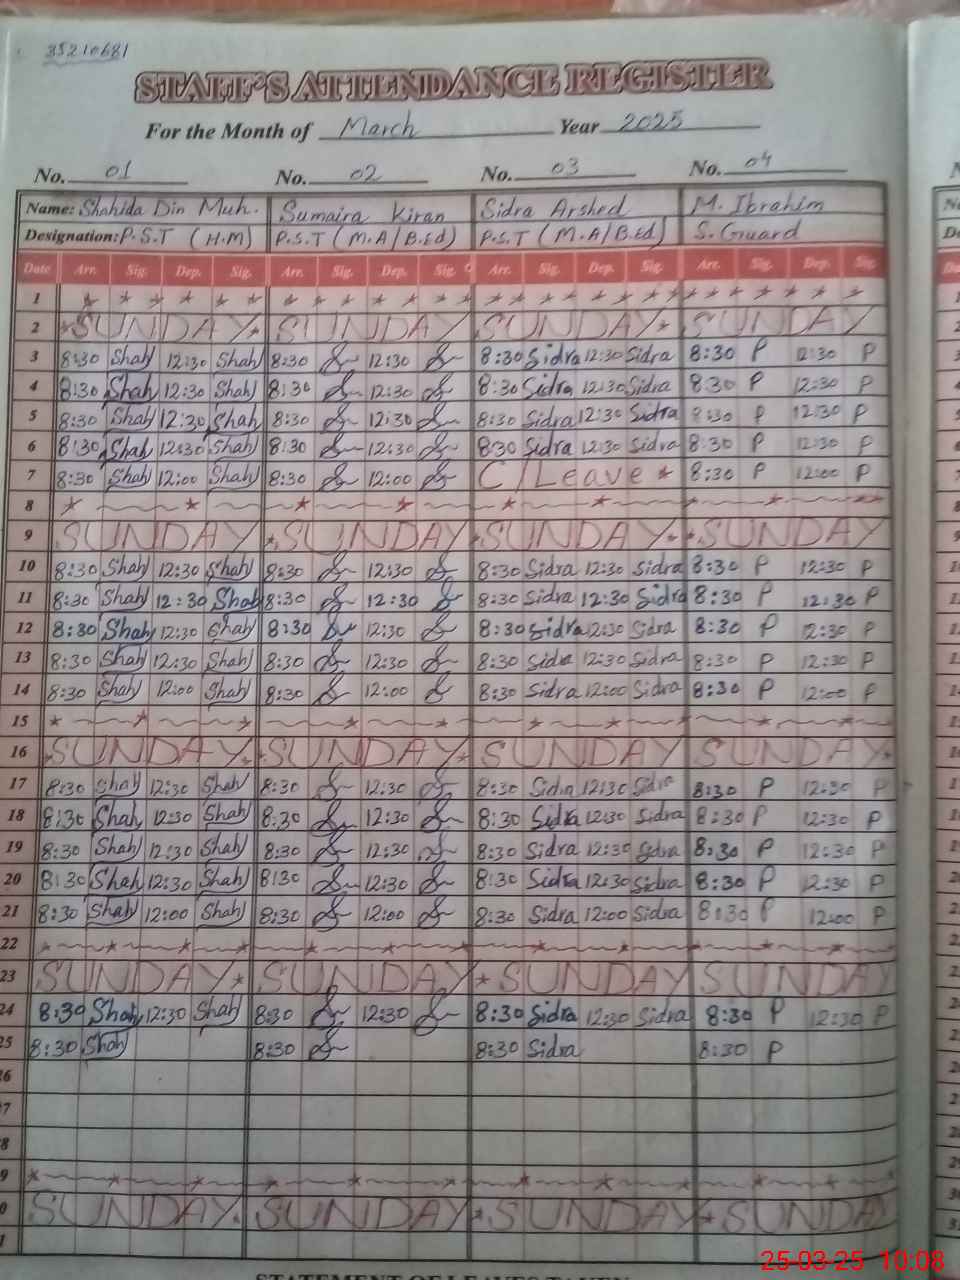 35210681
STAFF'S ATTENDANCE REGISTER
For the Month of March Year 2025
No. 01 No. 02 No. 03 No. 04
Name: Shahida Din Muh. Sumaira Kiran Sidra Arshed M. Ibrahim
Designation: P.S.T (H.M) P.S.T (M.A/B.Ed) P.S.T (M.A/B.Ed) S. Guard
Date Arr. Sig. Dep. Sig. Arr. Sig. Dep. Sig. Arr. Sig. Dep. Sig. Arr. Sig. Dep. Sig.
1
2 SUNDAY SUNDAY SUNDAY SUNDAY
3 8:30 Shah 12:30 Shah 8:30 12:30 8:30 Sidra 12:30 Sidra 8:30 P 12:30 P
4 8:30 Shah 12:30 Shah 8:30 12:30 8:30 Sidra 12:30 Sidra 8:30 P 12:30 P
5 8:30 Shah 12:30 Shah 8:30 12:30 8:30 Sidra 12:30 Sidra 8:30 P 12:30 P
6 8:30 Shah 12:30 Shah 8:30 12:30 8:30 Sidra 12:30 Sidra 8:30 P 12:30 P
7 8:30 Shah 12:00 Shah 8:30 12:00 C/Leave 8:30 P 12:00 P
8
9 SUNDAY SUNDAY SUNDAY SUNDAY
10 8:30 Shah 12:30 Shah 8:30 12:30 8:30 Sidra 12:30 Sidra 8:30 P 12:30 P
11 8:30 Shah 12:30 Shah 8:30 12:30 8:30 Sidra 12:30 Sidra 8:30 P 12:30 P
12 8:30 Shah 12:30 Shah 8:30 12:30 8:30 Sidra 12:30 Sidra 8:30 P 12:30 P
13 8:30 Shah 12:30 Shah 8:30 12:30 8:30 Sidra 12:30 Sidra 8:30 P 12:30 P
14 8:30 Shah 12:00 Shah 8:30 12:00 8:30 Sidra 12:00 Sidra 8:30 P 12:00 P
15
16 SUNDAY SUNDAY SUNDAY SUNDAY
17 8:30 Shah 12:30 Shah 8:30 12:30 8:30 Sidra 12:30 Sidra 8:30 P 12:30 P
18 8:30 Shah 12:30 Shah 8:30 12:30 8:30 Sidra 12:30 Sidra 8:30 P 12:30 P
19 8:30 Shah 12:30 Shah 8:30 12:30 8:30 Sidra 12:30 Sidra 8:30 P 12:30 P
20 8:30 Shah 12:30 Shah 8:30 12:30 8:30 Sidra 12:30 Sidra 8:30 P 12:30 P
21 8:30 Shah 12:00 Shah 8:30 12:00 8:30 Sidra 12:00 Sidra 8:30 P 12:00 P
22
23 SUNDAY SUNDAY SUNDAY SUNDAY
24 8:30 Shah 12:30 Shah 8:30 12:30 8:30 Sidra 12:30 Sidra 8:30 P 12:30 P
25 8:30 Shah 8:30 8:30 Sidra 8:30 P
26
7
8
9
0 SUNDAY SUNDAY SUNDAY SUNDAY
1
STATEMENT OF LEAVES TAKEN
25-03-25 10:08